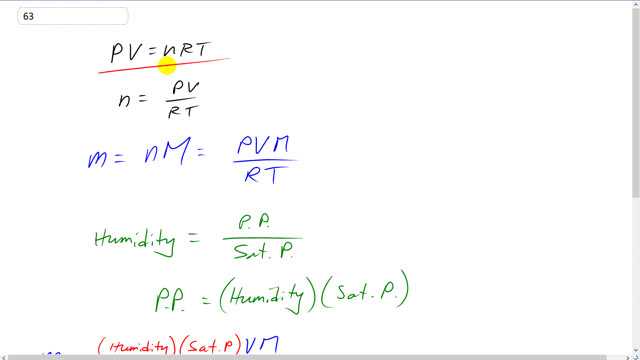 63
PV = nRT
n = PV / RT
m = nM = PVM / RT
Humidity = P.P. / Sat. P.
P.P. = (Humidity)(Sat. P.)
(Humidity)(Sat. P) VM